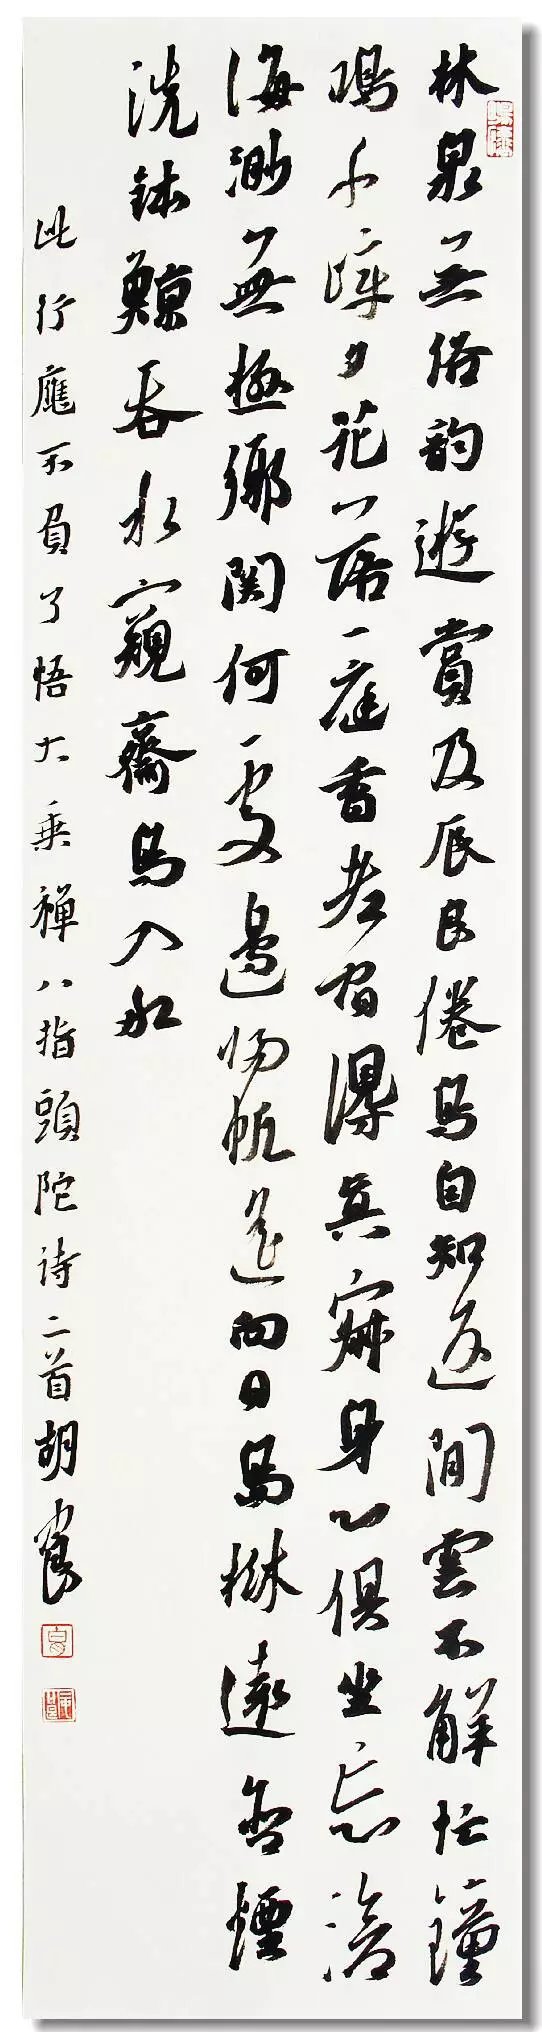 林泉无俗韵遊賞及辰良倦鳥自知返閒雲不解忙鐘
鳴千嶂夕花落一庭香老宿得真寂身心俱坐忘滄
海渺無極鄉關何處邊揚帆遙向日島樹遠含煙
洗鉢鯨吞水窺齋鳥入船
此行應不負了悟大乘禪八指頭陀詩二首胡